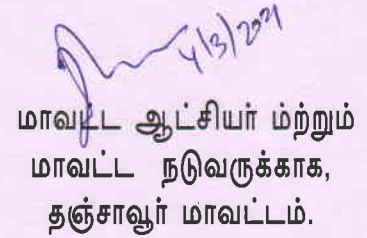 4/3/2021
மாவட்ட ஆட்சியர் ம்ற்றும்
மாவட்ட நடுவருக்காக,
தஞ்சாவூர் மாவட்டம்.